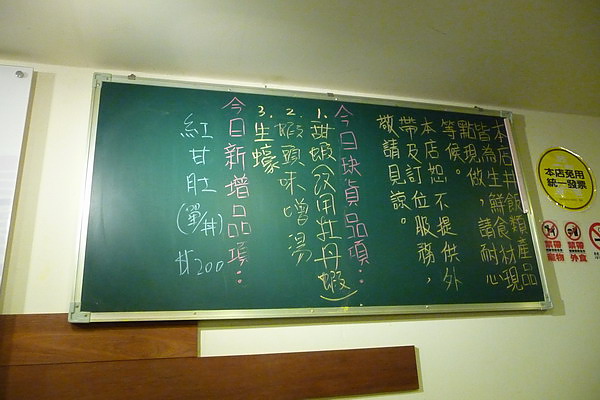 本店丼飯類產品
皆為生鮮食材現
點現做,請耐心
等候。
本店恕不提供外
帶及訂位服務,
敬請見諒。
今日缺貨品項:
1.甜蝦(改用牡丹蝦)
2.蝦頭味噌湯
3.生蠔
今日新增品項:
紅甘肚(單/丼)
$200
本店免用
統一發票
禁帶
寵物
禁帶
外食